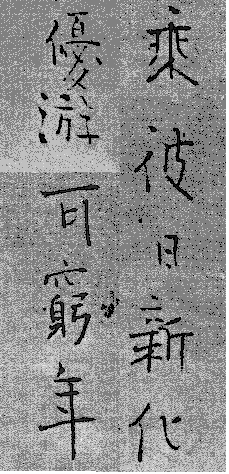 乘彼日新化
優游可窮年